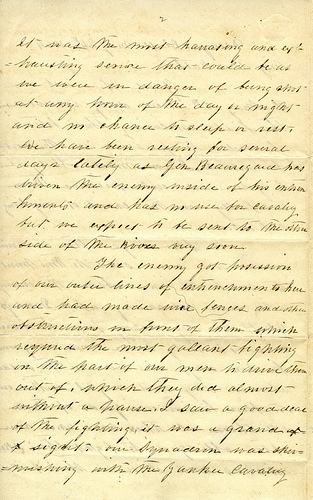 2
It was the most harrassing and ex-
=hausting service that could be as
we were in danger of being shot
at any hour of the day or night
and no chance to sleep or rest.
We have been resting for several
days lately as Genl Beauregard has
driven the enemy inside of his entren
chments and has no use for cavalry
but we expect to be sent to the other
side of the River very soon.
The enemy got possession
of our outer lines of entrenchments here
and had made wire fences and other
obstructions in front of them which
required the most gallant fighting
on the part of our men to drive them
out of, which they did almost
without a pause. I saw a good deal
of the fighting, it was a grand
sight. our squadron was skir
=mishing with the Yankee Cavalry